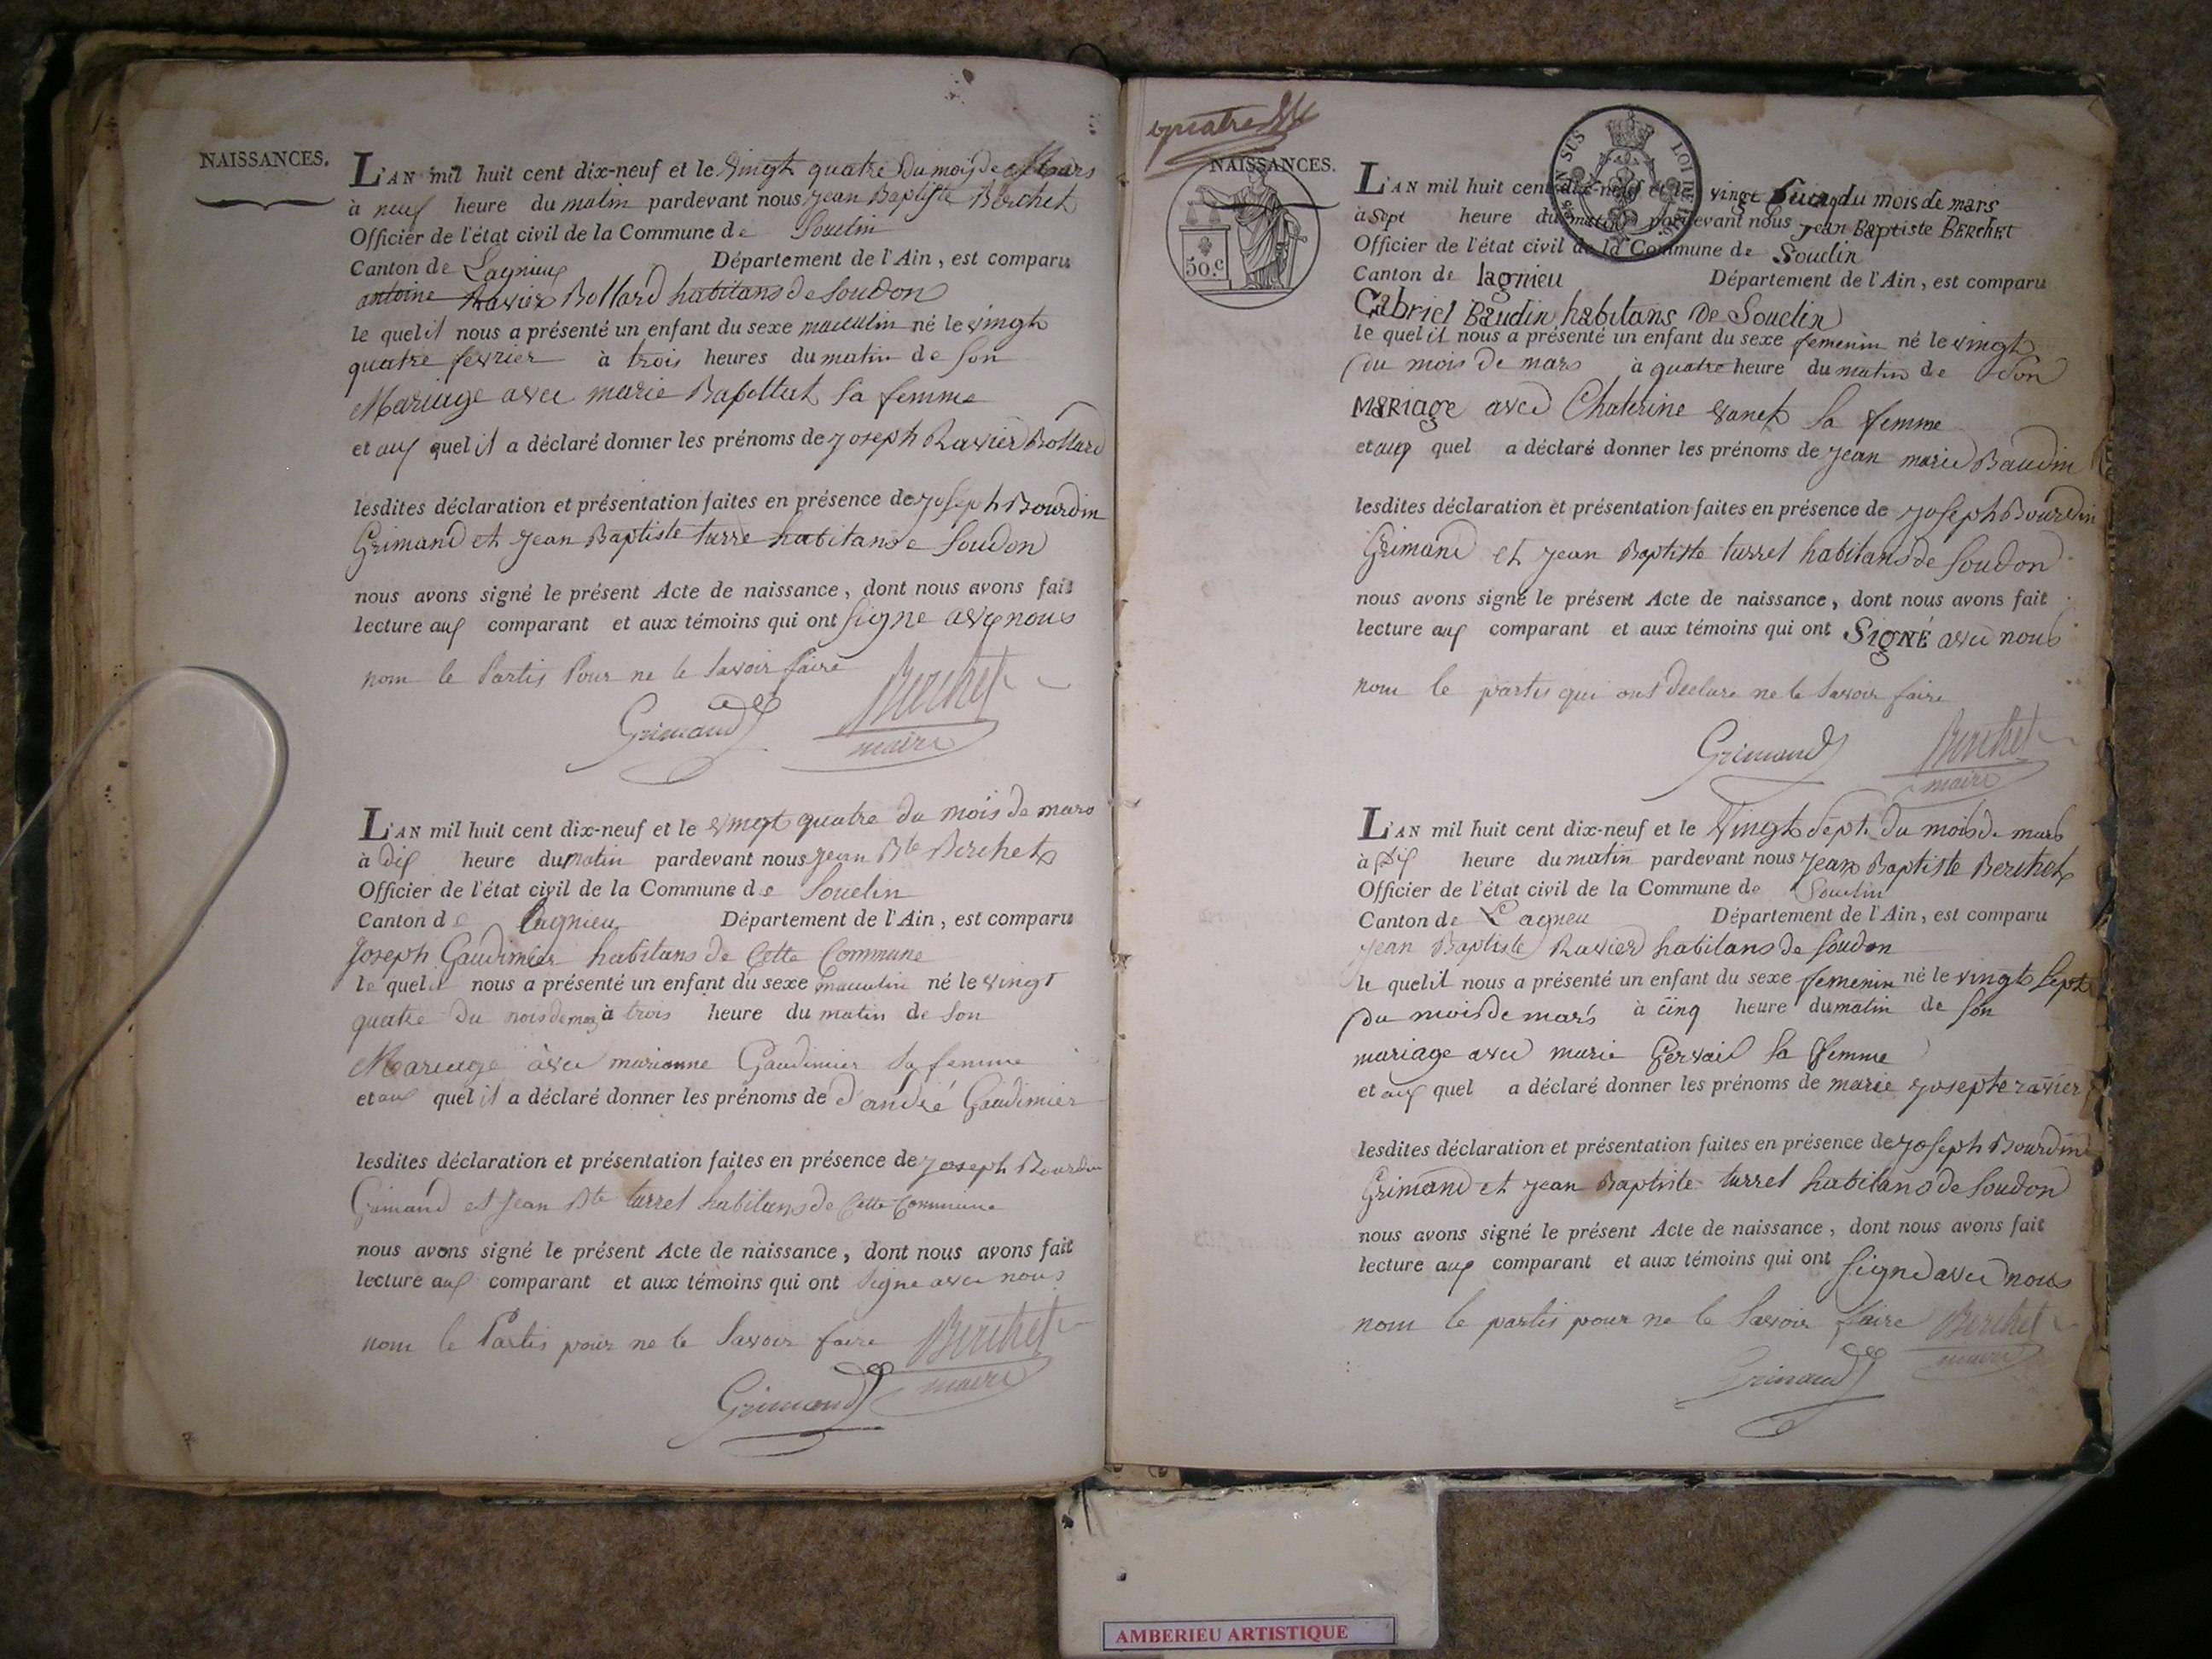 NAISSANCES.
L'AN mil huit cent dix-neuf et le vingt quatre du mois de Mars
à neuf heure du matin pardevant nous jean Baptiste Berthet
Officier de l'état civil de la Commune de Souclin
Canton de Lagnieu Département de l'Ain, est comparu
antoine Ravier Bollard habitans de Soudon
le quel il nous a présenté un enfant du sexe masculin né le vingt
quatre fevrier à trois heures du matin de son
Mariage avec marie sa femme
et auf quel il a déclaré donner les prénoms de joseph Ravier Bollard
lesdites déclaration et présentation faites en présence de joseph Bourdin
Grimand et jean Baptiste turre habitans e Soudon
nous avons signé le présent Acte de naissance, dont nous avons fait
lecture auf comparant et aux témoins qui ont signe avec nous
nom le Partis Pour ne le Savoir faire
Berthet
Grimand
maire
L'AN mil huit cent dix-neuf et le vingt quatre du mois de mars
à dif heure du matin pardevant nous jean Bte Berthet
Officier de l'état civil de la Commune de Souclin
Canton de Lagnieu Département de l'Ain, est comparu
Joseph Gaudimier habitans de Cette Commune
le quel il nous a présenté un enfant du sexe masculin né le vingt
quatre du mois de mars à trois heure du matin de son
Mariage avec marianne Gaudimier sa femme
et auf quel il a déclaré donner les prénoms de d'andré Gaudimier
lesdites déclaration et présentation faites en présence de joseph Bourdin
Grimand et jean Bte turrel habitans de Cette Commune
nous avons signé le présent Acte de naissance, dont nous avons fait
lecture auf comparant et aux témoins qui ont signe avec nous
nom le Partis pour ne le Savoir faire Berthet
maire
Grimand
quatre
NAISSANCES.
50.c
EN SUS
LOI DE
L'AN mil huit cent dix-neuf et le vingt du mois de mars
à sept heure du matin pardevant nous jean Baptiste BERthET
Officier de l'état civil de la Commune de Souclin
Canton de lagnieu Département de l'Ain, est comparu
Gabriel Baudin habitans De Souclin
le quel il nous a présenté un enfant du sexe femenin né le vingt
du mois de mars à quatre heure du matin de son
MARiage avec Chaterine vanet sa femme
et auf quel a déclaré donner les prénoms de jean marie Baudin
lesdites déclaration et présentation faites en présence de joseph Bourdin
Grimand et jean Baptiste turrel habitans de Soudon
nous avons signé le présent Acte de naissance, dont nous avons fait
lecture auf comparant et aux témoins qui ont SIGNÉ avec nous
nom le partis qui ont declare ne le savoir faire
Grimand Berthet
maire
L'AN mil huit cent dix-neuf et le vingt sept du mois de mars
à dif heure du matin pardevant nous jean Baptiste Berthet
Officier de l'état civil de la Commune de Souclin
Canton de Lagneu Département de l'Ain, est comparu
jean Baptiste Ravier habitans de Soudon
le quel il nous a présenté un enfant du sexe femenin né le vingt sept
du mois de mars à cinq heure du matin de son
mariage avec marie Gervail sa femme
et auf quel a déclaré donner les prénoms de marie josephe ravier
lesdites déclaration et présentation faites en présence de joseph Bourdin
Grimand et jean Baptiste turrel habitans de Soudon
nous avons signé le présent Acte de naissance, dont nous avons fait
lecture auf comparant et aux témoins qui ont signe avec nous
nom le partis pour ne le Savoir faire Berthet
maire
Grimand
AMBERIEU ARTISTIQUE